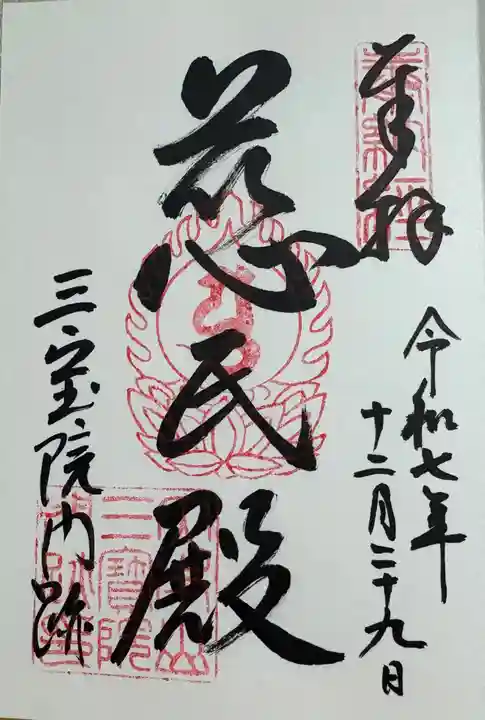 奉拝
令和七年
十二月二十九日
慈氏殿
三宝院門跡
三寳院